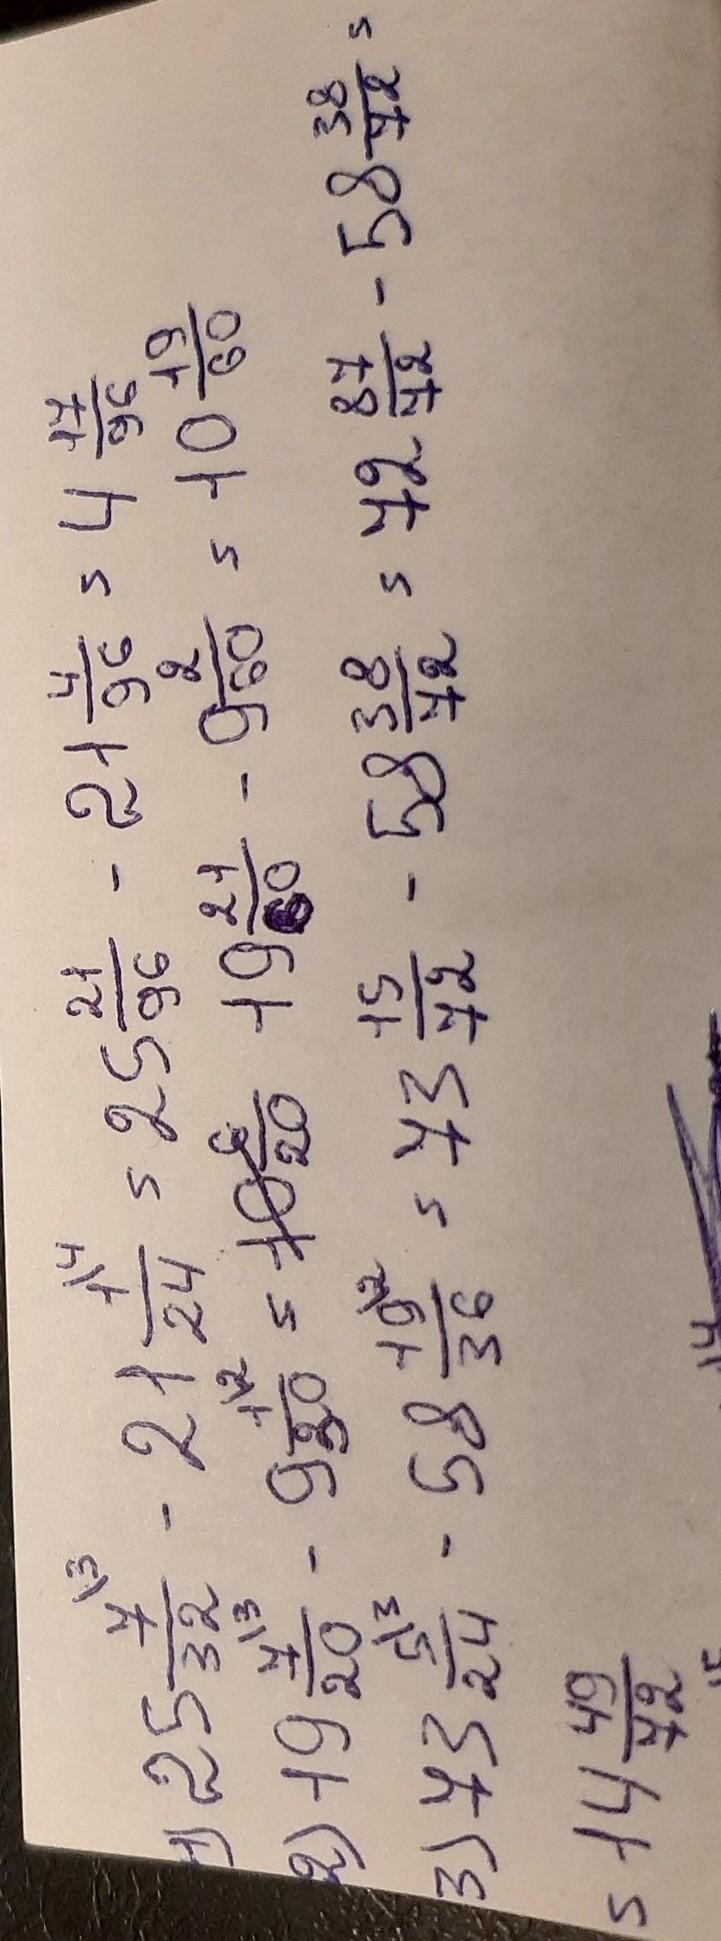 1) 25 7/32 \3 - 21 1/24 \4 = 25 21/96 - 21 4/96 = 4 17/96
2) 19 7/20 \3 - 9 1/30 \2 = 19 21/60 - 9 2/60 = 10 19/60
3) 73 5/24 \3 - 58 19/36 \2 = 73 15/72 - 58 38/72 = 72 87/72 - 58 38/72 =
= 14 49/72